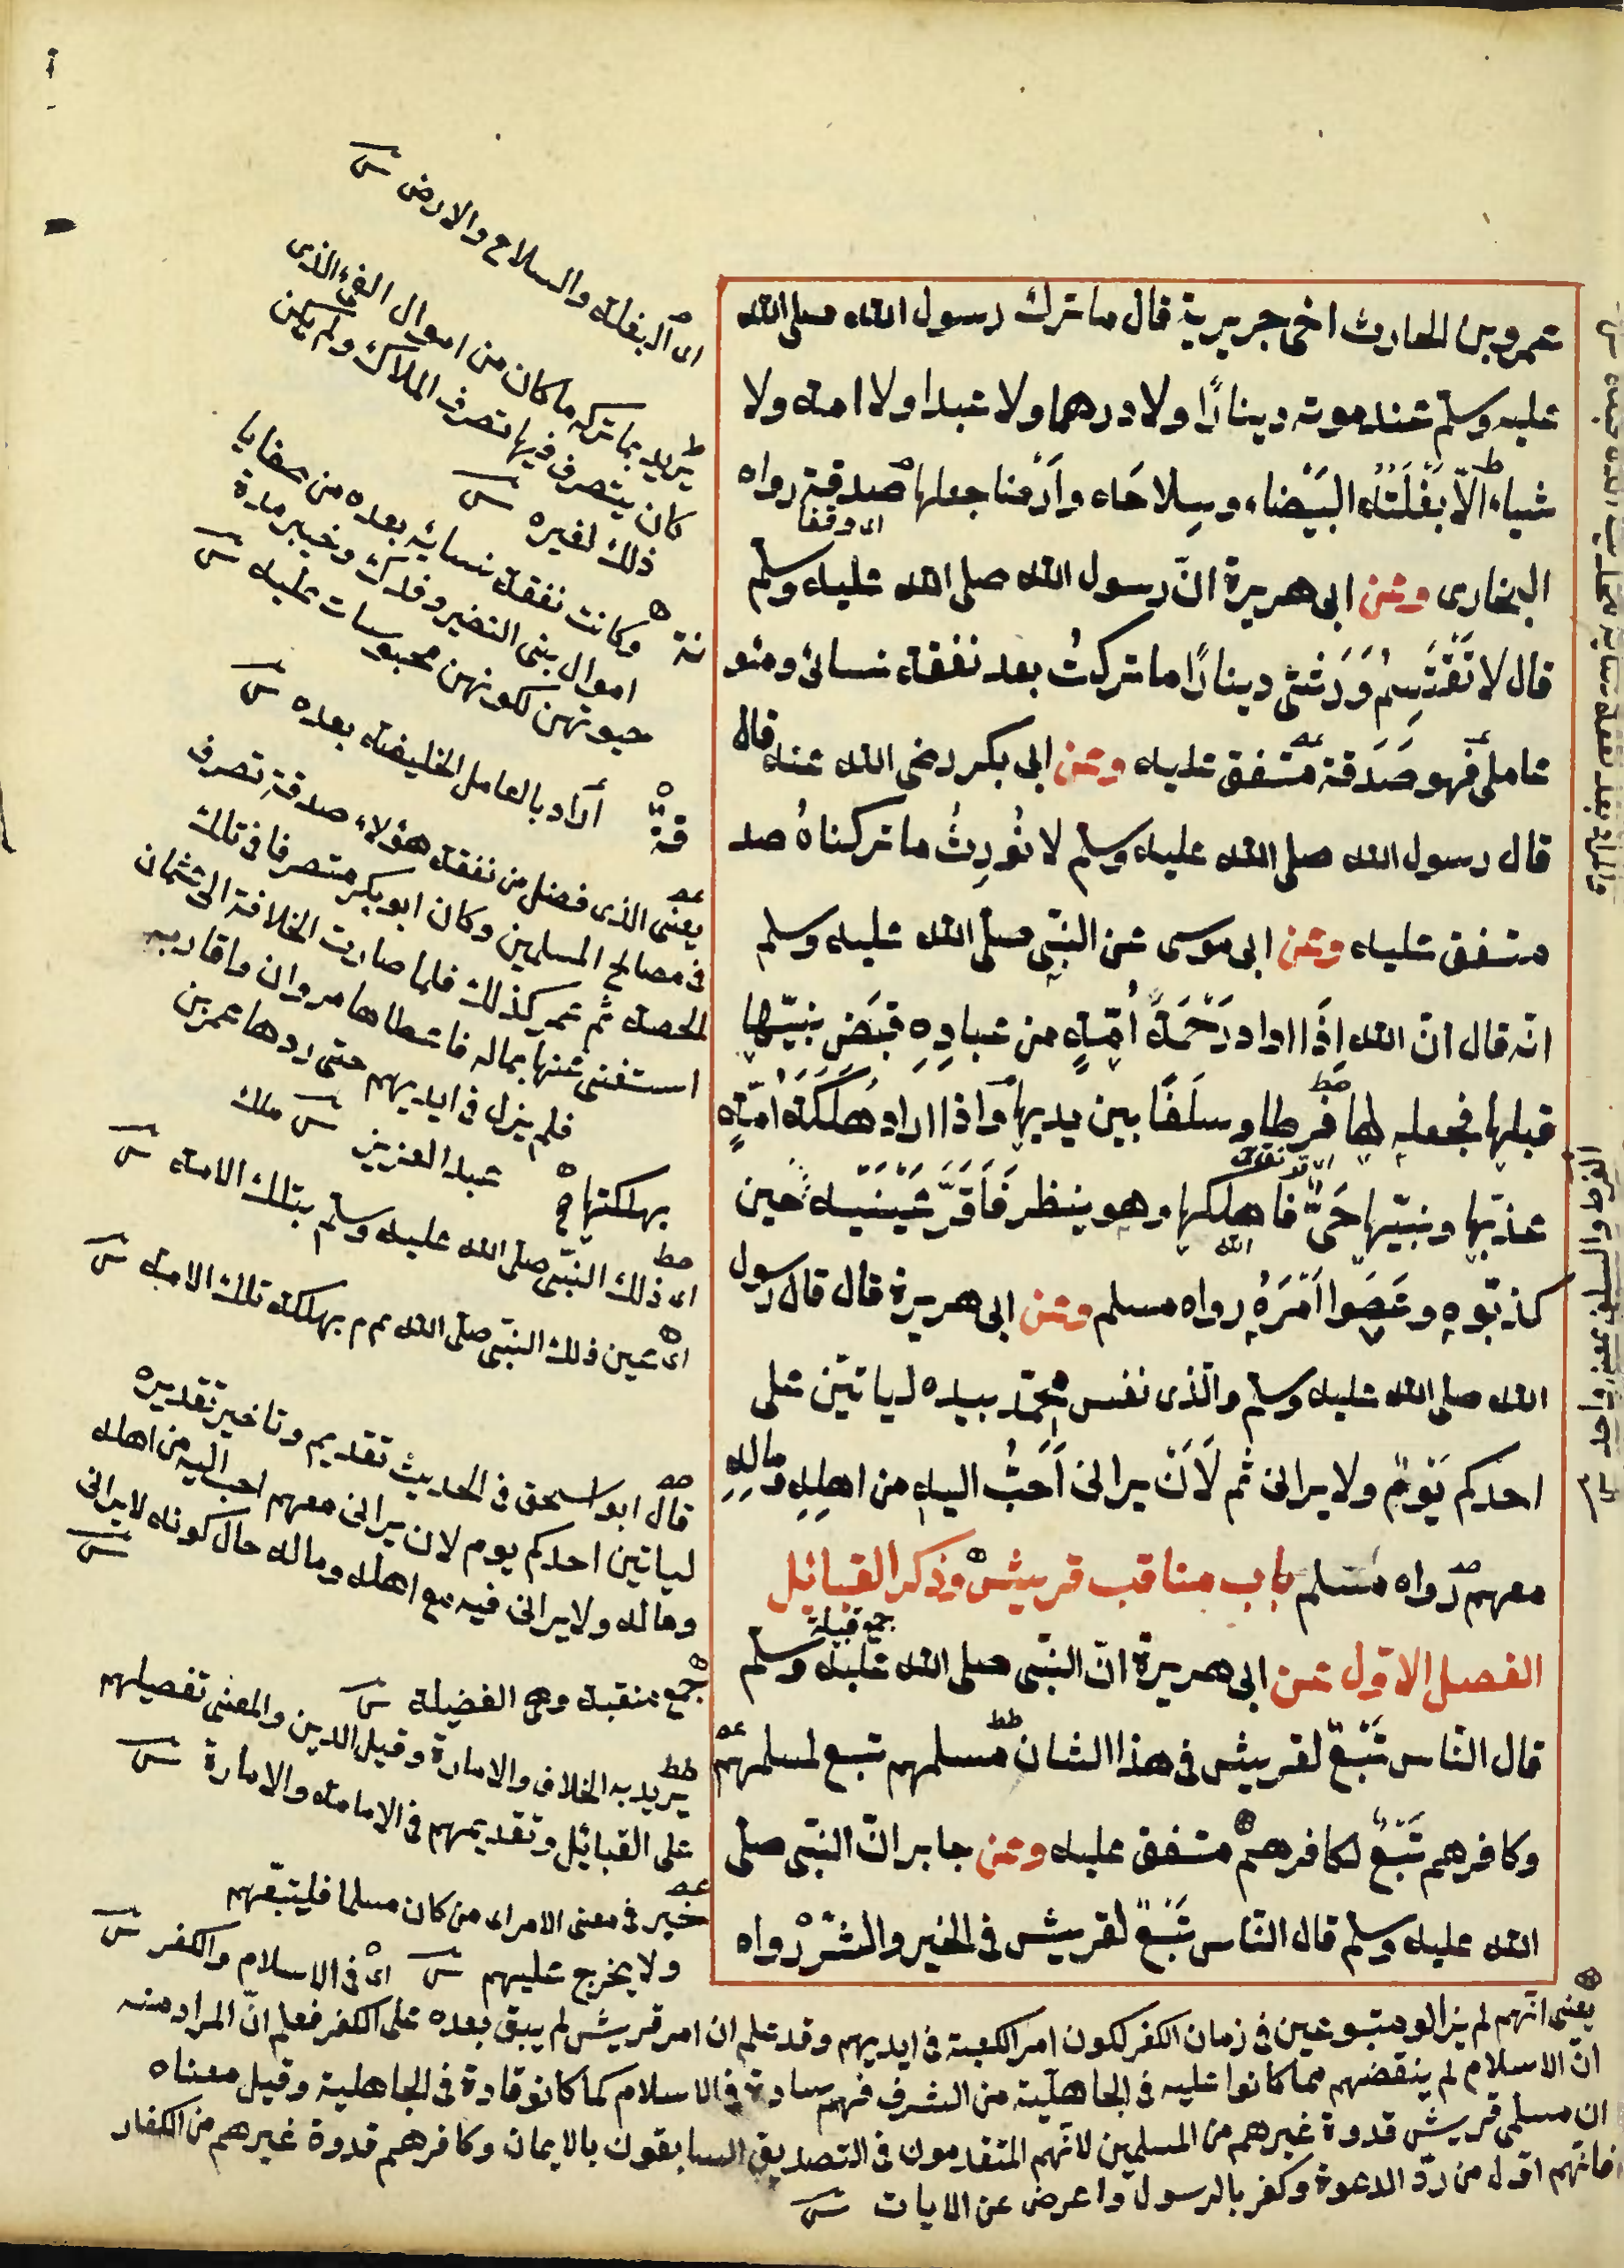 عمرو بن الحارث اخى جويرية قال ما ترك رسول الله صلى الله
عليه وسلم عند موته دينارًا ولا درهما ولا عبدا ولا امة ولا
شياء الّا بَغْلَتَه البَيْضاء وسِلاحَه وأَرْضا جعلها صدقة رواه
اى وقفا
البخارى وعن ابى هريرة انّ رسول الله صلى الله عليه وسلم
قال لا تَقْتَسِمُ وَرَثتى دينارًا ما تركتُ بعد نفقة نسائى ومئو
عاملى فهو صَدَقة متفق عليه وعن ابى بكر رضى الله عنه قال
قال رسول الله صلى الله عليه وسلم لا نُورِثُ ما تركناهُ صد
متفق عليه وعن ابى موسى عن النبّى صلّى الله عليه وسلم
انّه قال انّ الله اذا اراد رَحْمَةَ اُمّةٍ من عبادِهِ قبَضَ نبيّها
قبلها فجعله لها فرطا وسلَفًا بين يديها واذا اراد هَلَكَة امّةٍ
عذبّها ونبيّها حَىٌّ فاهلكها وهو ينظر فَاَقَرَّ عَيْنَيه حين
الله
كذبّوهِ وعَصَوا اَمْرَهُ رواه مسلم وعن ابى هريرة قال قال رسول
الله صلى الله عليه وسلم والّذى نفس محمّد بيده لياتيّن على
احدكم يَوْمٌ ولا يرانى ثم لَاَنْ يرانى اَحَبُّ اليهِ من اهلِهِ ومالِهِ
معهم رواه مسلم باب مناقب قريش وذكر القبائل
جمع قبيلة
الفصل الاوّل عن ابى هريرة انّ النبّى صلى الله عليه وسلم
قال النّاس تَبَعٌ لقريش فى هذا الشان مسلمهم تبع لمسلمهم
وكافرهم تَبَعٌ لكافرهم متفق عليه وعن جابر انّ النبّى صلّى
الله عليه وسلم قال النّاس تَبَعٌ لقريش فى الخير والشّرّ رواه
اى البغلة والسلاح والارض
يريد بما تركه ما كان من اموال الفئ الذى
كان يتصرف فيها تصرف الملاك ولم يكن
ذلك لغيره
نة
وكانت نفقة نسائه بعده من صفايا
اموال بنى النضير وفدك وخيبر مدة
حيوتهن لكونهن محبوسات عليه
اراد بالعامل الخليفة بعده
قة
يعنى الذى فضل من نفقة هؤلاء صدقة تصرف
فى مصالح المسلمين وكان ابو بكر متصرفا فى تلك
الحصة ثم عمر كذلك فلما صارت الخلافة الى عثمان
استغنى عنها بماله فاعطاها مروان ما قاربه
فلم يزل فى ايديهم حتى ردها عمر بن
عبد العزيز
بهلكتها
اى ذلك النبّى صلى الله عليه وسلم بتلك الامة
اى عين ذلك النبّى صلّى الله عم م بهلكة تلك الامة
قال ابو اسحق فى الحديث تقديم وتاخير تقديره
لياتين احدكم يوم لان يرانى معهم احب اليه من اهله
وماله ولا يرانى فيه مع اهله وماله حال كونه لا يرانى
جمع منقبة وهى الفضيلة
يريد به الخلاف والامارة وقيل الدين والمعنى تفضيلهم
على القبائل وتقديمهم فى الامامة والامارة
خبر فى معنى الامر اى من كان مسلما فليتبعهم
ولا يخرج عليهم
اى فى الاسلام والكفر
يعنى انّهم لم يزالو متبوعين فى زمان الكفر لكون امر الكعبة فى ايديهم وقد علم ان امر قريش لم يبق بعده على الكفر فعلم انّ المراد منه
انّ الاسلام لم ينقضهم مما كانوا عليه فى الجاهليّة من الشرف فهم سادة فى الاسلام كما كانو قادة فى الجاهلية وقيل معناه
ان مسلمى قريش قدوة غيرهم من المسلمين لانّهم المتقدمون فى التصديق السابقون بالايمان وكافرهم قدوة غيرهم من الكفار
فانّهم اوّل من ردّ الدعوة وكفر بالرسول واعرض عن الايات